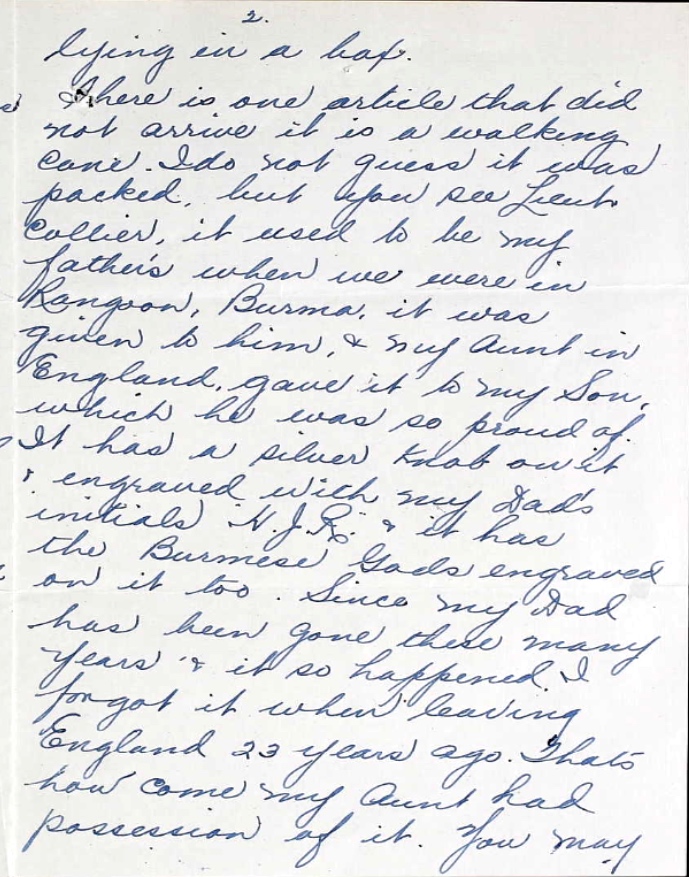 2.
lying in a box.
There is one article that did
not arrive it is a walking
cane. I do not guess it was
packed, but you see Lieut.
Collier, it used to be my
father's when we were in
Rangoon, Burma, it was
given to him, & my Aunt in
England, gave it to my Son,
which he was so proud of.
It has a silver knob on it
& engraved with my Dad's
initials H.J.R. & it has
the Burmese Gods engraved
on it too. Since my Dad
has been gone these many
years & it so happened I
forgot it when leaving
England 23 years ago. Thats
how come my Aunt had
possession of it. You may